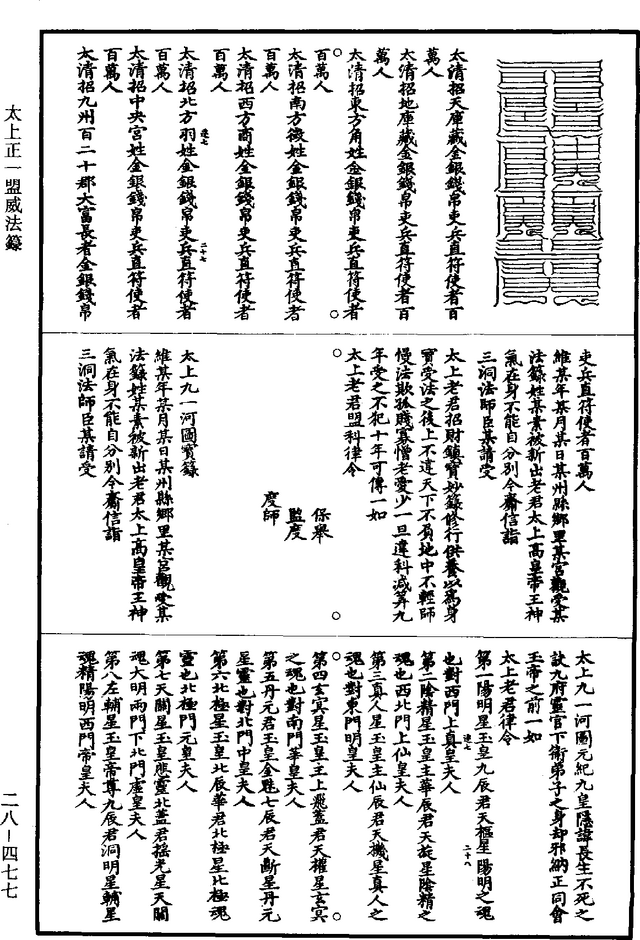 太清招天庫藏金銀錢帛吏兵直符使者百
萬人
太清招地庫藏金銀錢帛吏兵直符使者百
萬人
太清招東方角姓金銀錢帛吏兵直符使者
百萬人
太清招南方徵姓金銀錢帛吏兵直符使者
百萬人
太清招西方商姓金銀錢帛吏兵直符使者
百萬人
太清招北方羽姓金銀錢帛吏兵直符使者
百萬人
太清招中央宮姓金銀錢帛吏兵直符使者
百萬人
太清招九州百二十郡大富長者金銀錢帛
吏兵直符使者百萬人
維某年某月某日某州縣鄉里某宮觀受某
法籙姓某素被新出老君太上高皇帝王神
氣在身不能自分別今齋信詣
三洞法師臣某請受
太上老君招財鎮寶妙籙修行供養以為身
寶受法之後上不違天下不負地中不輕師
慢法欺孤賤寡憎老愛少一旦違科減筭九
年受之不犯十年可傳一如
太上老君盟科律令
保舉
監度
度師
太上九一河圖寶籙
維某年某月某日某州縣鄉里某宮觀受某
法籙姓某素被新出老君太上高皇帝王神
氣在身不能自分別今齋信詣
三洞法師臣某請受
太上九一河圖元紀九皇隱諱長生不死之
訣九府靈官下衛弟子之身却邪納正同會
玉帝之前一如
太上老君律令
第一陽明星玉皇九辰君天樞星陽明之魂
也對西門上真皇夫人
第二陰精星玉皇主華辰君天旋星陰精之
魂也西北門上仙皇夫人
第三真人星玉皇主仙辰君天機星真人之
魂也對東門明皇夫人
第四玄冥星玉皇主上飛蓋君天權星玄冥
之魂也對南門華皇夫人
第五丹元君玉皇金魁七辰君天斷星丹元
星靈也對北門中皇夫人
第六北極星玉皇北辰華君北極星北極魂
靈也北極門元皇夫人
第七天關星玉皇應靈北蓋君搖光星天關
魂大明兩門下北門虛皇夫人
第八左輔星玉皇帝尊九辰君洞明星輔星
魂精陽明西門帝皇夫人
太上正一盟威法籙
二八－四七七
逐七
二十七
逐七
二十八